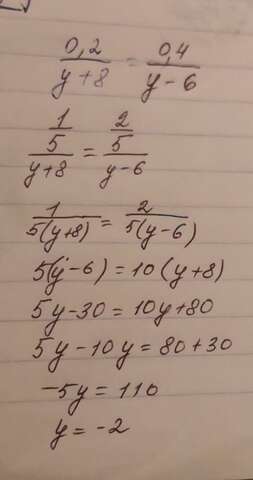 0,2/(y+8) = 0,4/(y-6)
(1/5)/(y+8) = (2/5)/(y-6)
1/(5(y+8)) = 2/(5(y-6))
5(y-6) = 10(y+8)
5y-30 = 10y+80
5y-10y = 80+30
-5y = 110
y = -2